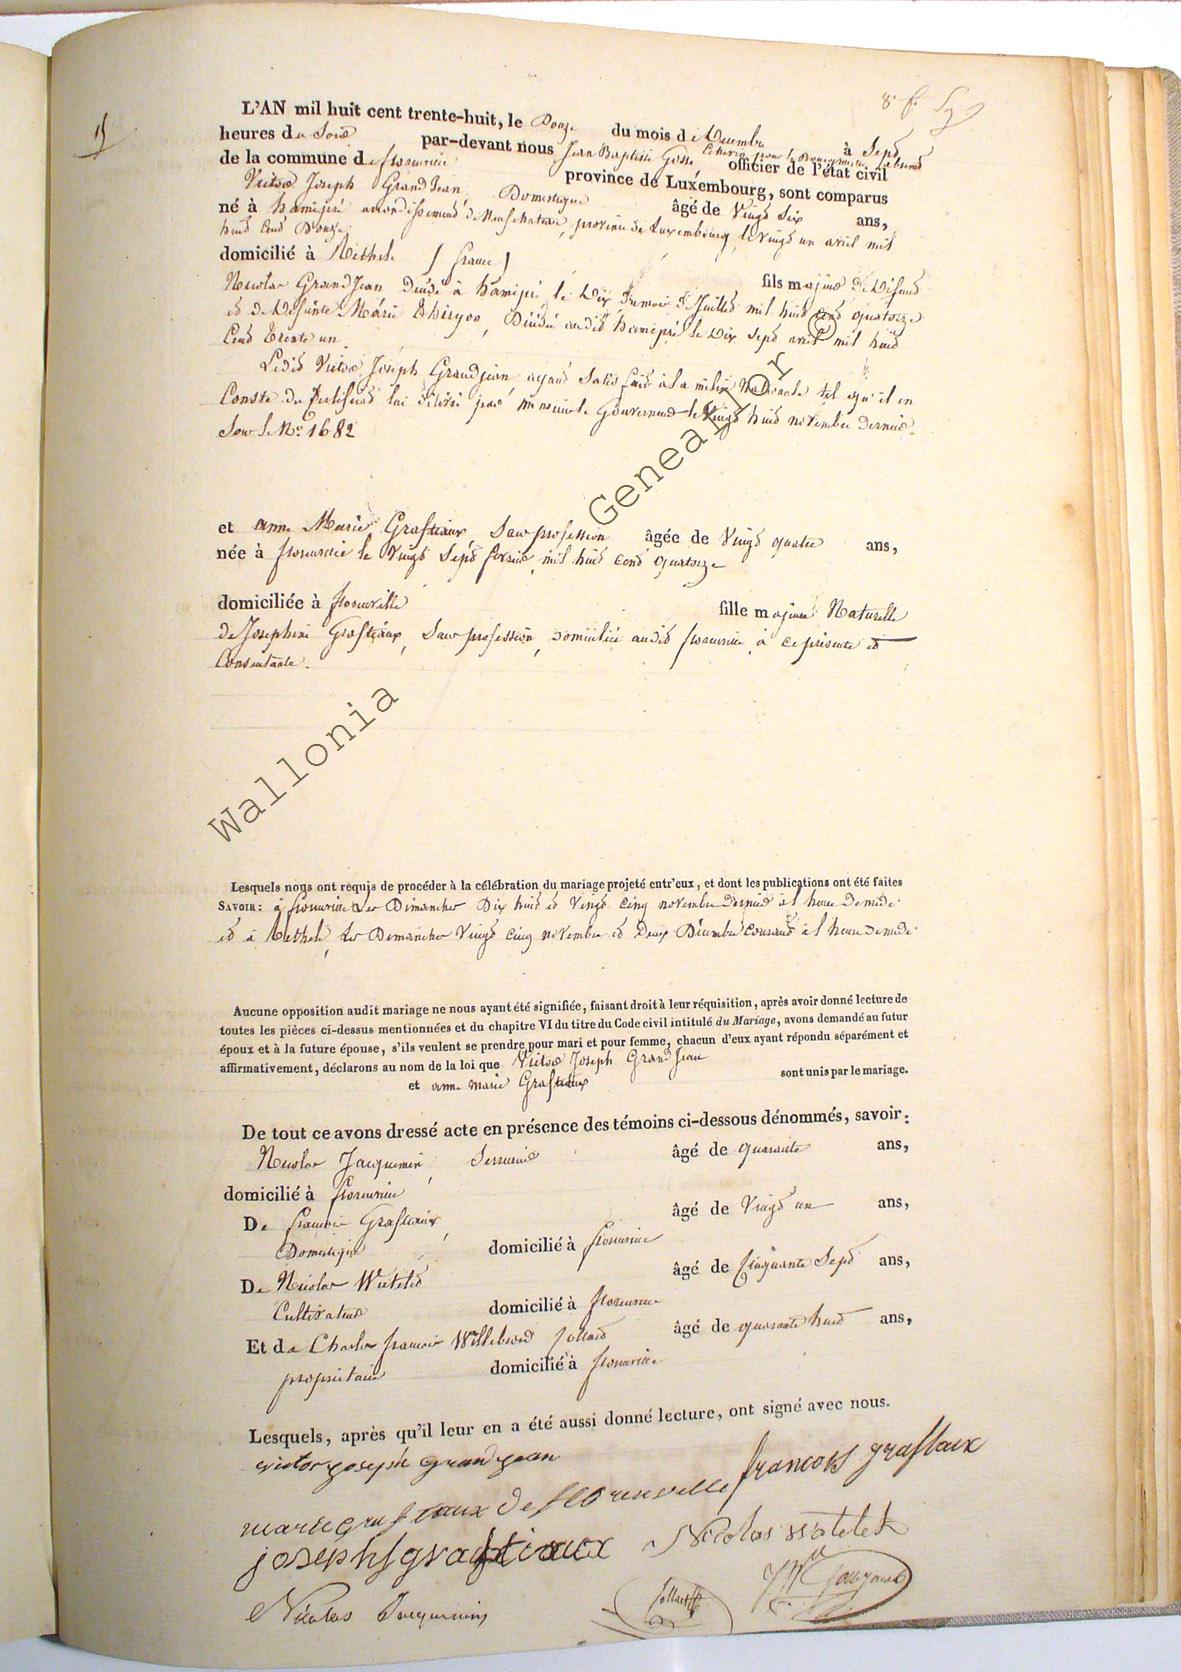 15
L'AN mil huit cent trente-huit, le Douze du mois de Décembre à Sept
heures du Soir par-devant nous Jean Baptiste Gosse Echevin pour le Bourgmestre absent officier de l'état civil
de la commune de florenville province de Luxembourg, sont comparus
Victor Joseph GrandJean, Domestique âgé de Vingt Six ans,
né à hamipré arrondissement de Neufchateau, province de Luxembourg, le vingt un avril mil
huit Cent Douze
domicilié à Rethel (france) fils majeur de Défunt
Nicolas GrandJean Décédé à hamipré le Dix du mois de Juillet mil huit cent quatorze
et de Défunte Marie Thiryon, Décédée audit hamipré le Dix Sept avril mil huit
Cent Trente un.
Ledit Victor Joseph Grandjean ayant Satisfait à la milice Nationale tel qu'il en
Conste du Certificat lui Délivré par le Gouverneur le Vingt huit novembre dernier
Sous le No 1682
et anne Marie Grafteaux Sans profession âgée de Vingt quatre ans,
née à florenville le Vingt Sept fevrier mil huit Cent quatorze
domiciliée à florenville fille majeure Naturelle
de Josephine Grafteaux, Sans profession, Domiciliée audit florenville, à ce présente et
Consentante.
Lesquels nous ont requis de procéder à la célébration du mariage projeté entr'eux, et dont les publications ont été faites
SAVOIR: à florenville Les Dimanches Dix huit et Vingt Cinq novembre Dernier à l'heure de midi
et à Rethel, Les Dimanches Vingt Cinq novembre et Deux Décembre Courant à l'heure de midi
Aucune opposition audit mariage ne nous ayant été signifiée, faisant droit à leur réquisition, après avoir donné lecture de
toutes les pièces ci-dessus mentionnées et du chapitre VI du titre du Code civil intitulé du Mariage, avons demandé au futur
époux et à la future épouse, s'ils veulent se prendre pour mari et pour femme, chacun d'eux ayant répondu séparément et
affirmativement, déclarons au nom de la loi que Victor Joseph GrandJean
et anne marie Grafteaux sont unis par le mariage.
De tout ce avons dressé acte en présence des témoins ci-dessous dénommés, savoir:
Nicolas Jacquemin, Serrurier âgé de quarante ans,
domicilié à florenville
De françois Grafteaux, âgé de Vingt un ans,
Domestique domicilié à florenville
De Nicolas Watelet âgé de Cinquante Sept ans,
Cultivateur domicilié à florenville
Et de Charles françois Willebrord Collard âgé de quarante huit ans,
propriétaire domicilié à florenville
Lesquels, après qu'il leur en a été aussi donné lecture, ont signé avec nous.
victor joseph grandjean
francois graftaux
marie graftaux de florenville
josephs graftiaux
Nicolas watelet
Nicolas Jacquemin
Wallonia Genealor ©